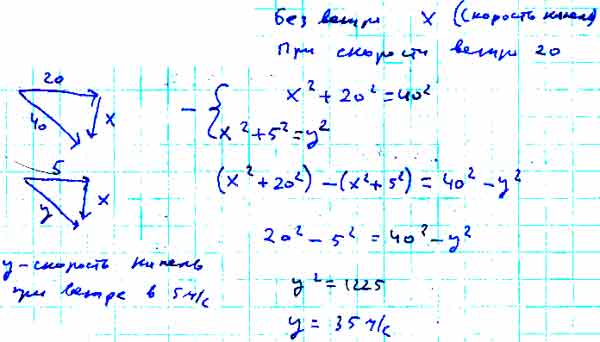 Без ветра X (скорость капель)
При скорости ветра 20
20
40
x
x² + 20² = 40²
- {
x² + 5² = y²
5
y
x
(x² + 20²) - (x² + 5²) = 40² - y²
20² - 5² = 40² - y²
y - скорость капель
при ветре в 5 м/с
y² = 1225
y = 35 м/с